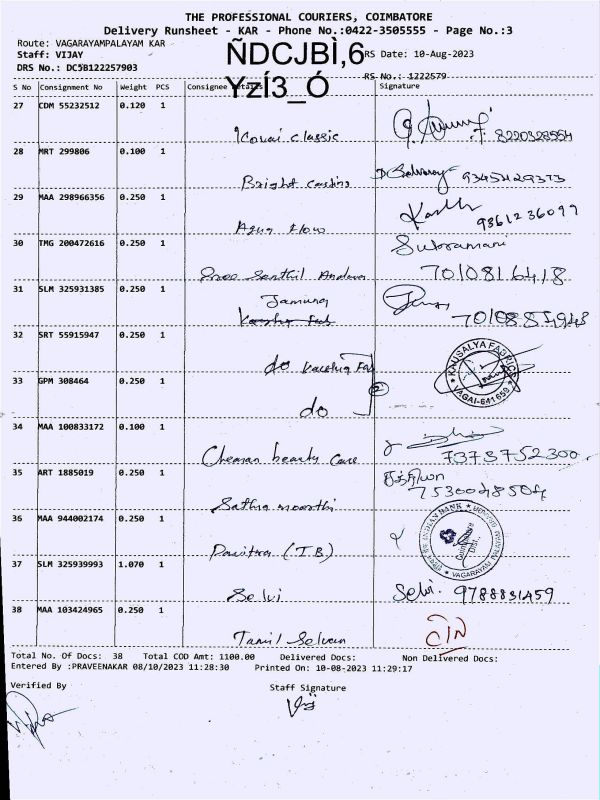 THE PROFESSIONAL COURIERS, COIMBATORE
Delivery Runsheet - KAR - Phone No.:0422-3505555 - Page No.:3
Route: VAGARAYAMPALAYAM KAR
ÑDCJBÌ,6
Staff: VIJAY RS Date: 10-Aug-2023
DRS No.: DC5B122257903
YzÍ3_Ó
RS No.: 1222579
S No Consignment No Weight PCS Consignee Details Signature
27 CDM 55232512 0.120 1
Kovai classic 8220328554
28 MRT 299806 0.100 1
Bright casting
29 MAA 298966356 0.250 1
Aqua flow 9361236099
30 TMG 200472616 0.250 1
Subramani
Sree Senthil Andavar 7010816418
31 SLM 325931385 0.250 1
Jamuna
32 SRT 55915947 0.250 1
do
KAUSALYA FABRICS
VAGAI-641 659
33 GPM 308464 0.250 1
2
do
34 MAA 100833172 0.100 1
Cheran beauty care 7373752300
35 ART 1885019 0.250 1
Sathya moorthi 7530048504
36 MAA 944002174 0.250 1
INDIAN BANK
Coimbatore Dist.
Pavithra (I.B)
37 SLM 325939993 1.070 1
Selvi Selvi. 9788831459
38 MAA 103424965 0.250 1
Tamil Selvan
Total No. Of Docs: 38 Total COD Amt: 1100.00 Delivered Docs: Non Delivered Docs:
Entered By :PRAVEENAKAR 08/10/2023 11:28:30 Printed On: 10-08-2023 11:29:17
Verified By Staff Signature